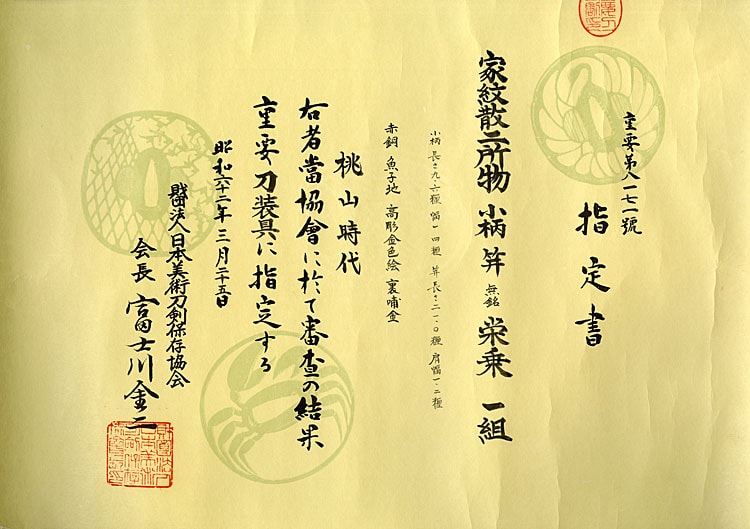 重要第八一七一號
指定書
家紋散二所物 小柄 笄 無銘 栄乗 一組
小柄 長さ九・六糎 幅一・四糎 笄 長さ二一・〇糎 肩幅一・二糎
赤銅 魚子地 高彫金色絵 裏哺金
桃山時代
右者當協會に於て審査の結果
重要刀装具に指定する
昭和六十二年三月二十五日
財団法人日本美術刀剣保存協会
会長 富士川金二